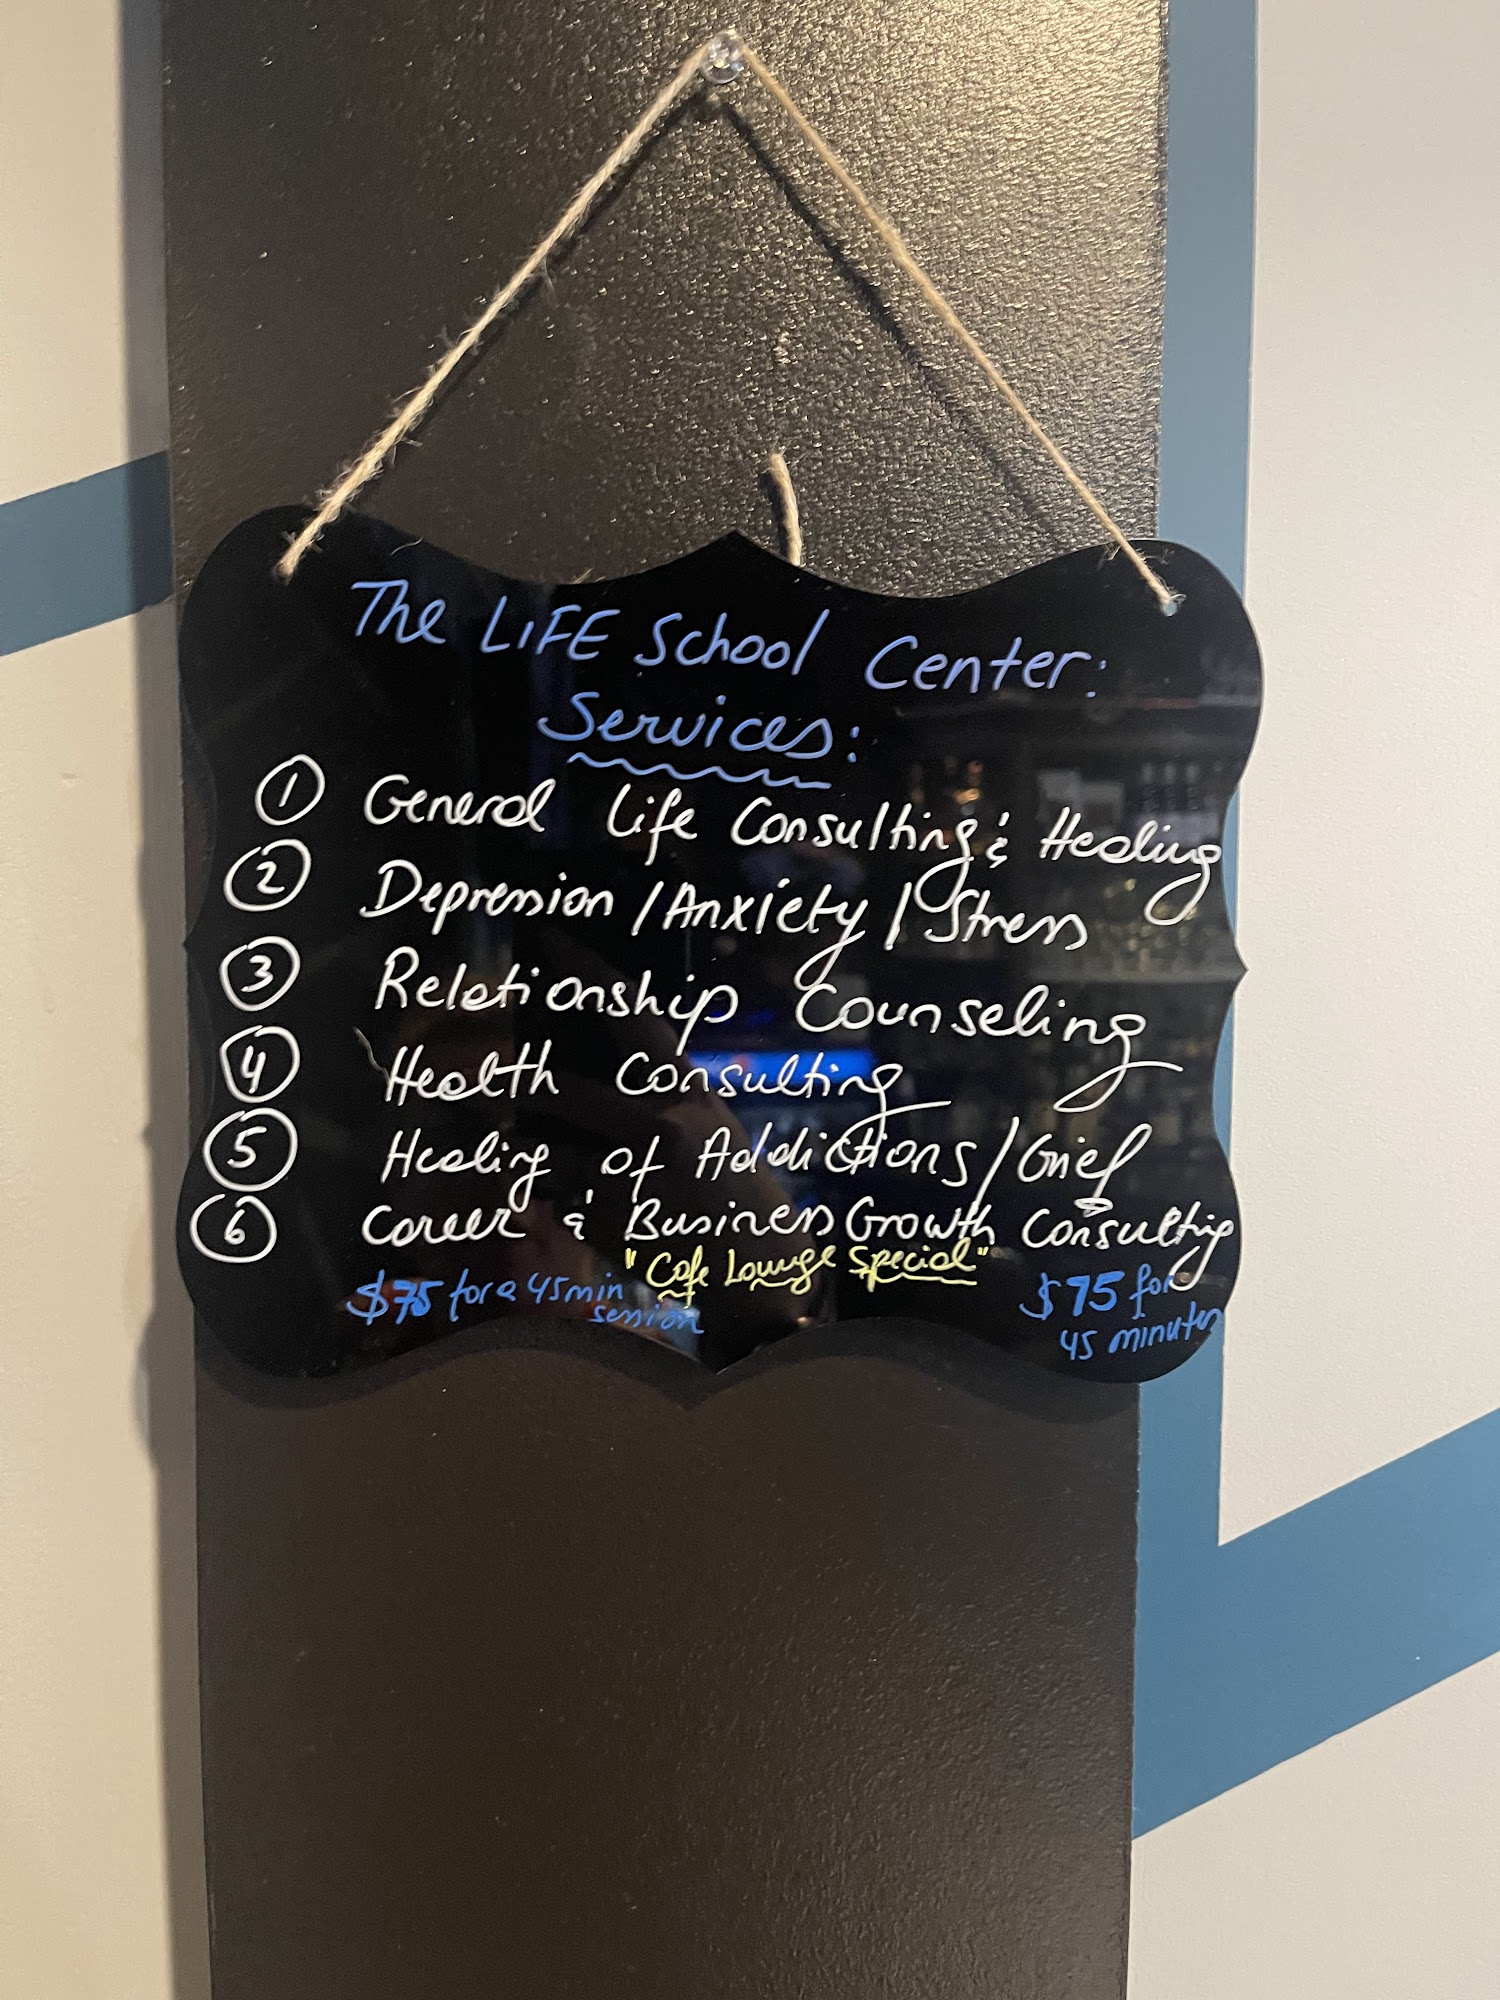 The LIFE School Center:
Services:
1 General Life Consulting & Healing
2 Depression / Anxiety / Stress
3 Relationship Counseling
4 Health Consulting
5 Healing of Addictions / Grief
6 Career & Business Growth Consulting
"Cafe Lounge Special"
$75 for a 45 min
session
$75 for
45 minutes